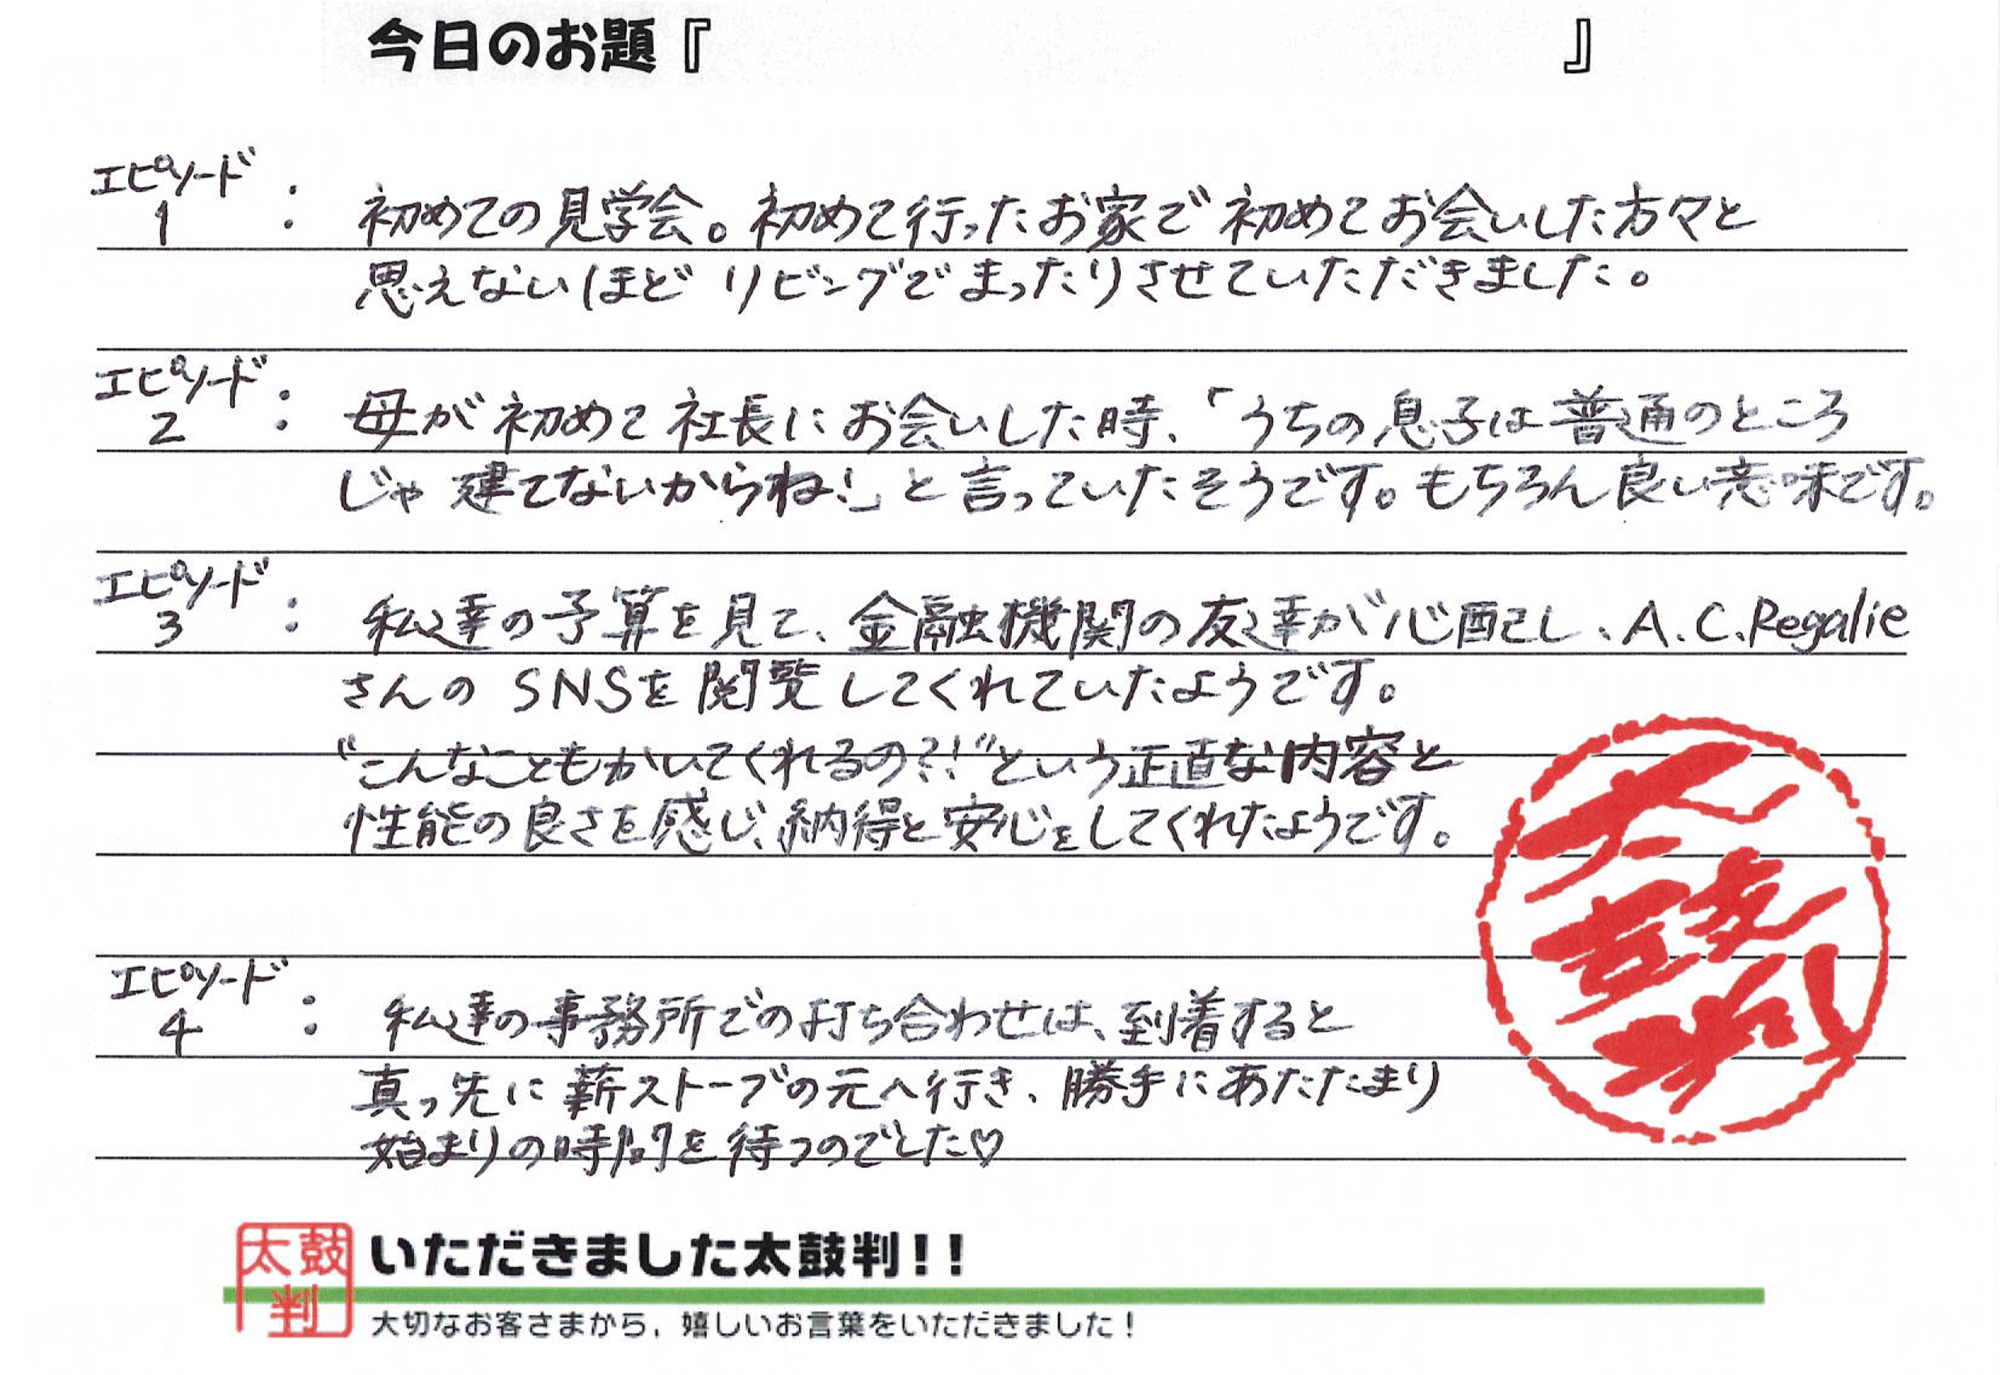 今日のお題『　　　』
エピソード1：初めての見学会。初めて行ったお家で初めてお会いした方々と
思えないほどリビングでまったりさせていただきました。
エピソード2：母が初めて社長にお会いした時、「うちの息子は普通のところ
じゃ建てないからね!」と言っていたそうです。もちろん良い意味です。
エピソード3：私達の予算を見て、金融機関の友達が心配し、A.C.Regalie
さんのSNSを閲覧してくれていたようです。
“こんなこともかいてくれるの?!”という正直な内容と
性能の良さを感じ、納得と安心をしてくれたようです。
エピソード4：私達の事務所での打ち合わせは、到着すると
真っ先に薪ストーブの元へ行き、勝手にあたたまり
始まりの時間を待つのでした♡
太鼓判
太鼓判
いただきました太鼓判!!
大切なお客さまから，嬉しいお言葉をいただきました！